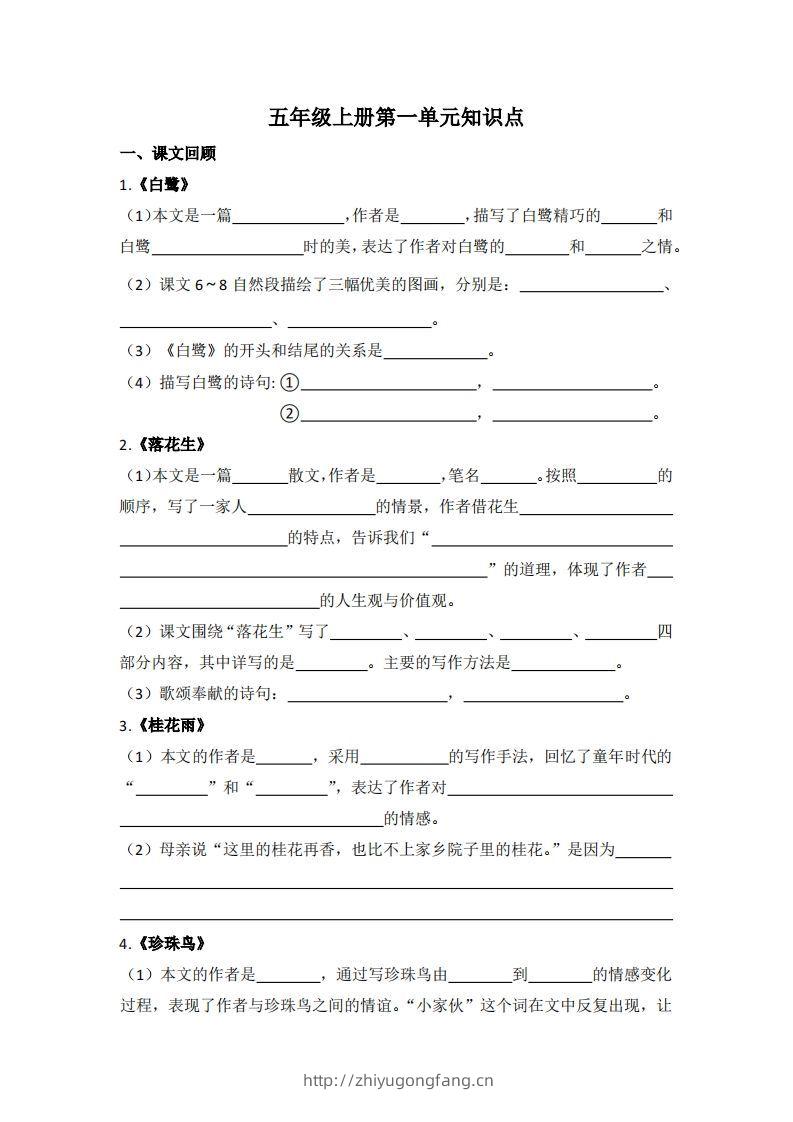 五年级上册第一单元知识点
一、课文回顾
1.《白鹭》
（1）本文是一篇______________，作者是________，描写了白鹭精巧的_______和
白鹭___________________时的美，表达了作者对白鹭的________和_______之情。
（2）课文 6～8 自然段描绘了三幅优美的图画，分别是：__________________、
___________________、__________________。
（3）《白鹭》的开头和结尾的关系是_____________。
（4）描写白鹭的诗句: ①______________________，____________________。
②______________________，____________________。
2.《落花生》
（1）本文是一篇_______散文，作者是________，笔名_______。按照__________的
顺序，写了一家人________________的情景，作者借花生___________________
_____________________的特点，告诉我们“______________________________
______________________________________________”的道理，体现了作者___
_________________________的人生观与价值观。
（2）课文围绕“落花生”写了_________、_________、_________、_________四
部分内容，其中详写的是_________。主要的写作方法是_____________。
（3）歌颂奉献的诗句：____________________，____________________。
3.《桂花雨》
（1）本文的作者是_______，采用___________的写作手法，回忆了童年时代的
“_________”和“_________”，表达了作者对____________________________
_________________________________的情感。
（2）母亲说“这里的桂花再香，也比不上家乡院子里的桂花。”是因为_______
_____________________________________________________________________
_____________________________________________________________________
4.《珍珠鸟》
（1）本文的作者是________，通过写珍珠鸟由________到________的情感变化
过程，表现了作者与珍珠鸟之间的情谊。“小家伙”这个词在文中反复出现，让
http://zhiyugongfang.cn